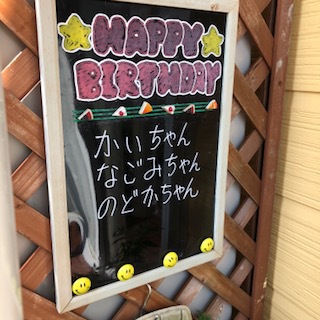 HAPPY
BIRTHDAY
かいちゃん
なごみちゃん
のどかちゃん